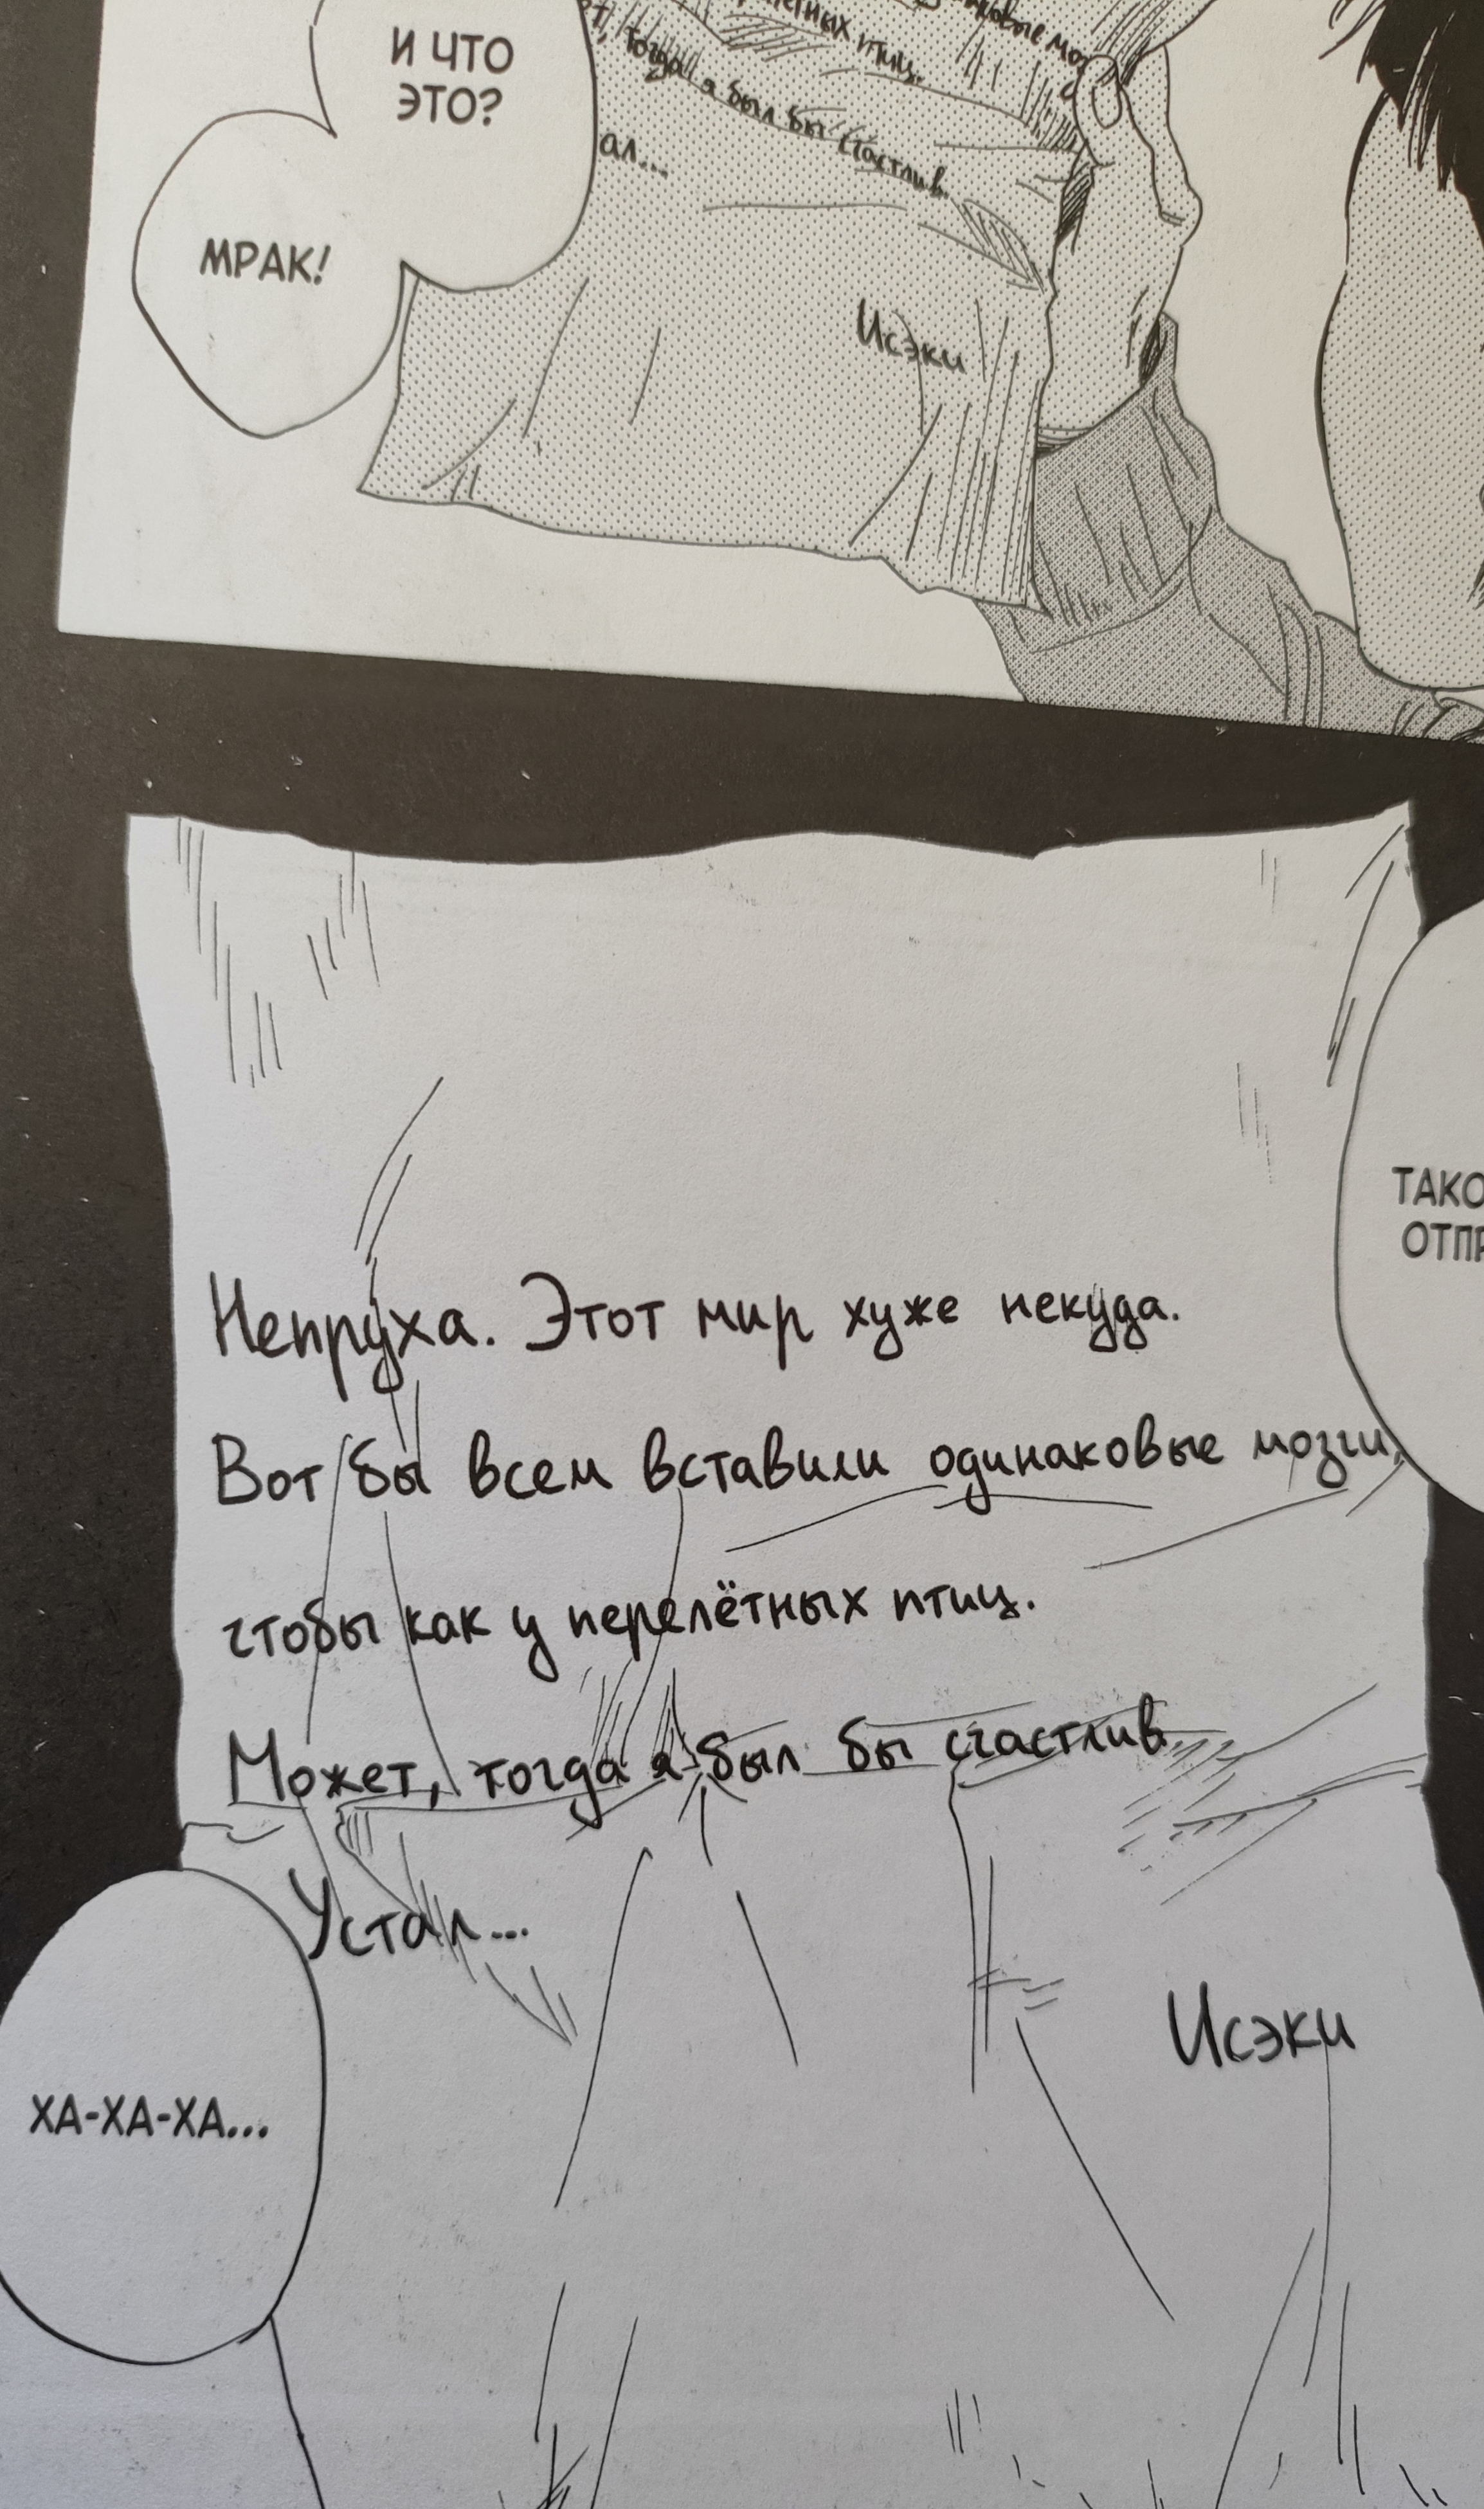 И ЧТО
ЭТО?
МРАК!
птиц.
тогда я был бы счастлив.
Исэки
Непруха. Этот мир хуже некуда.
Вот бы всем вставили одинаковые мозги,
чтобы как у перелётных птиц.
Может, тогда я был бы счастлив.
Устал...
Исэки
ХА-ХА-ХА...